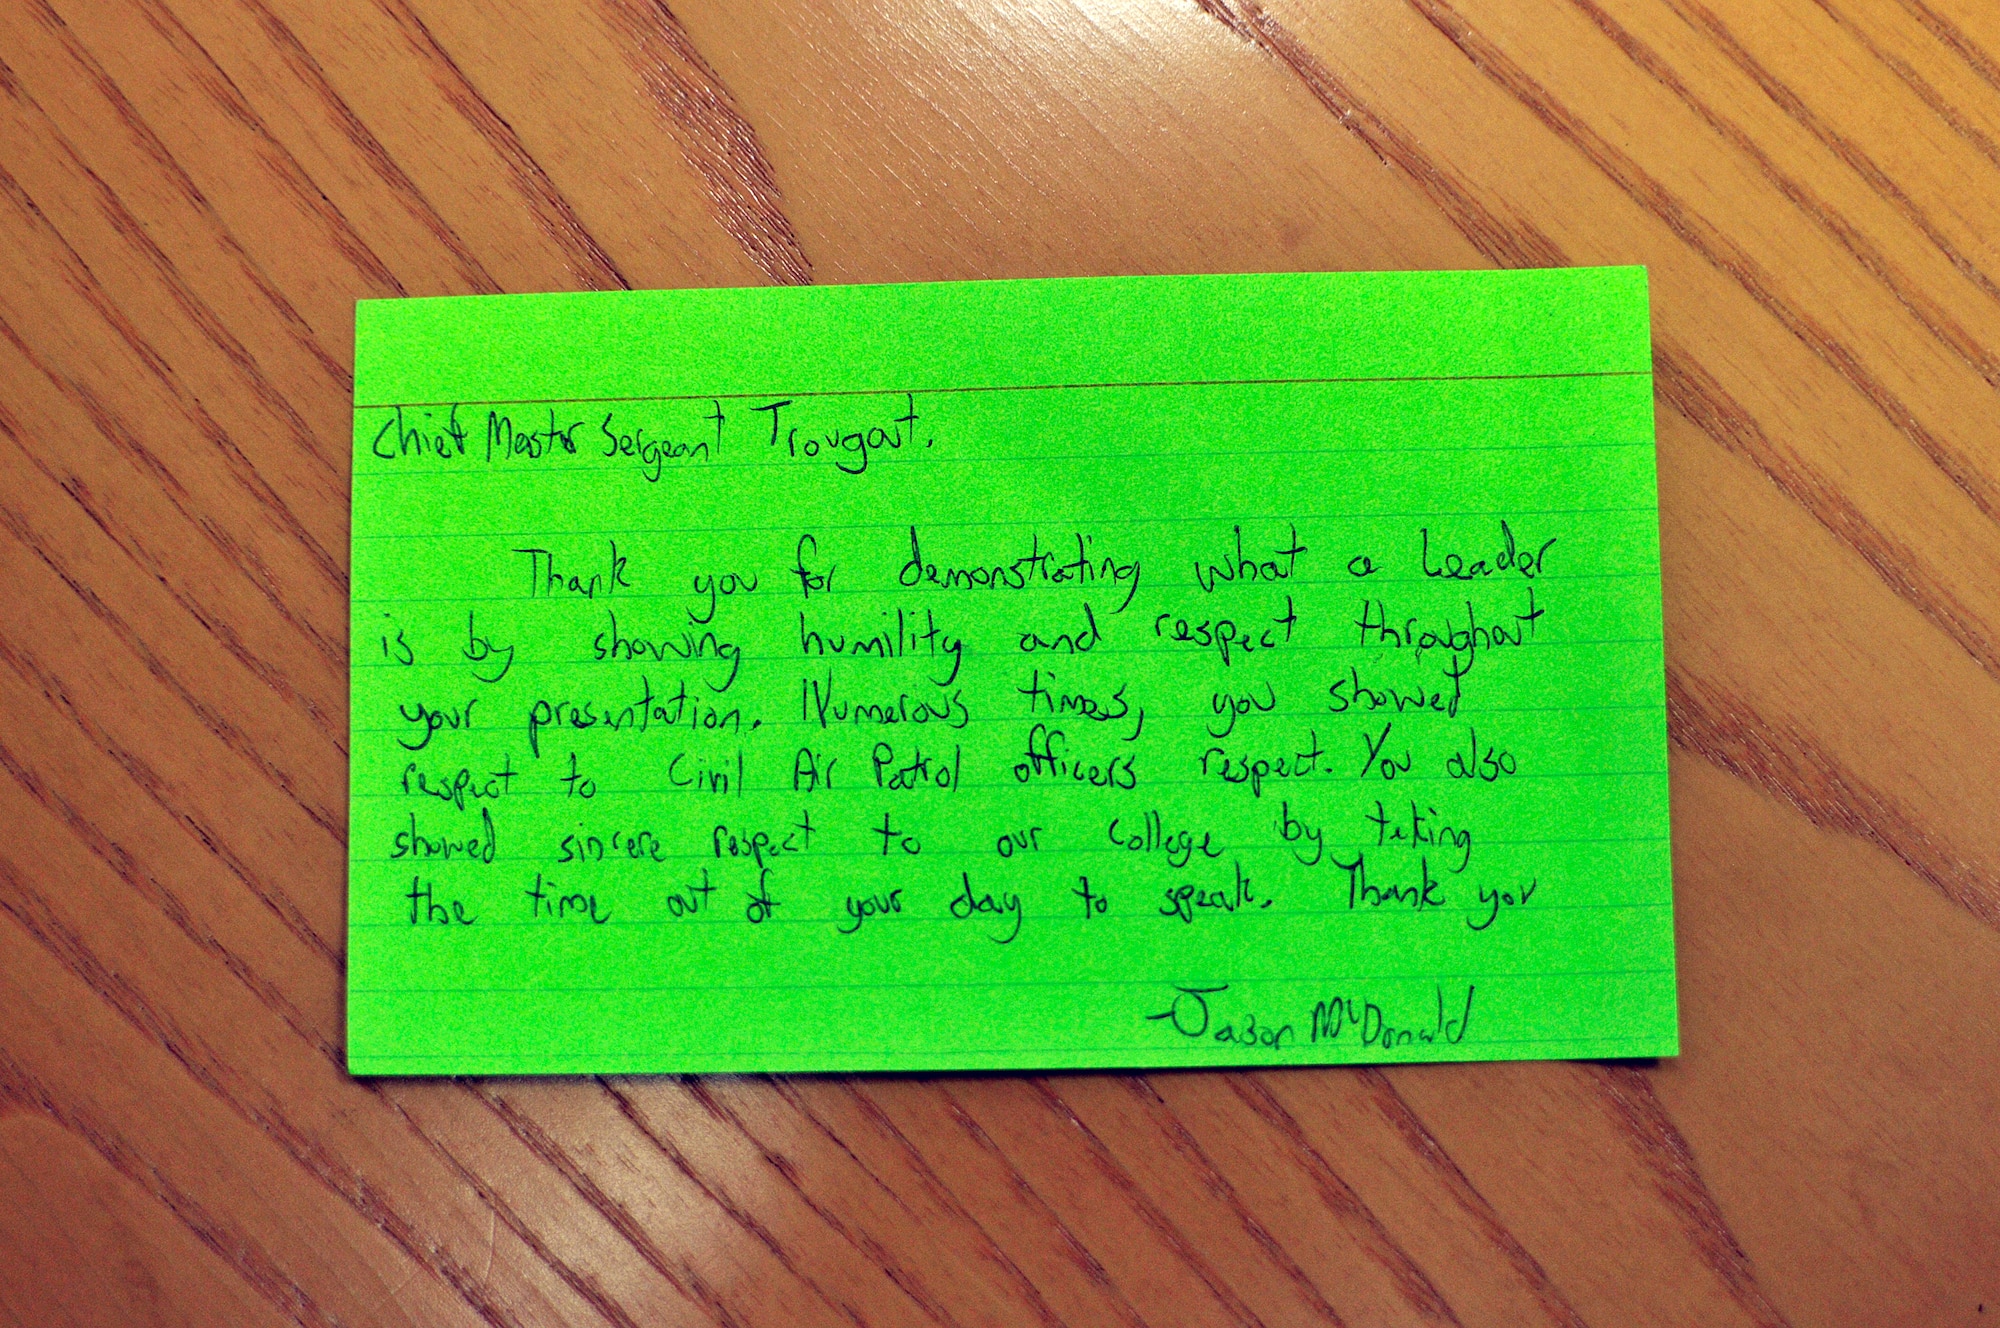 Chief Master Sergeant Trougout.
Thank you for demonstrating what a Leader
is by showing humility and respect throughout
your presentation. Numerous times, you showed
respect to Civil Air Patrol officers respect. You also
showed sincere respect to our College by taking
the time out of your day to speak. Thank you
-Jason McDonald